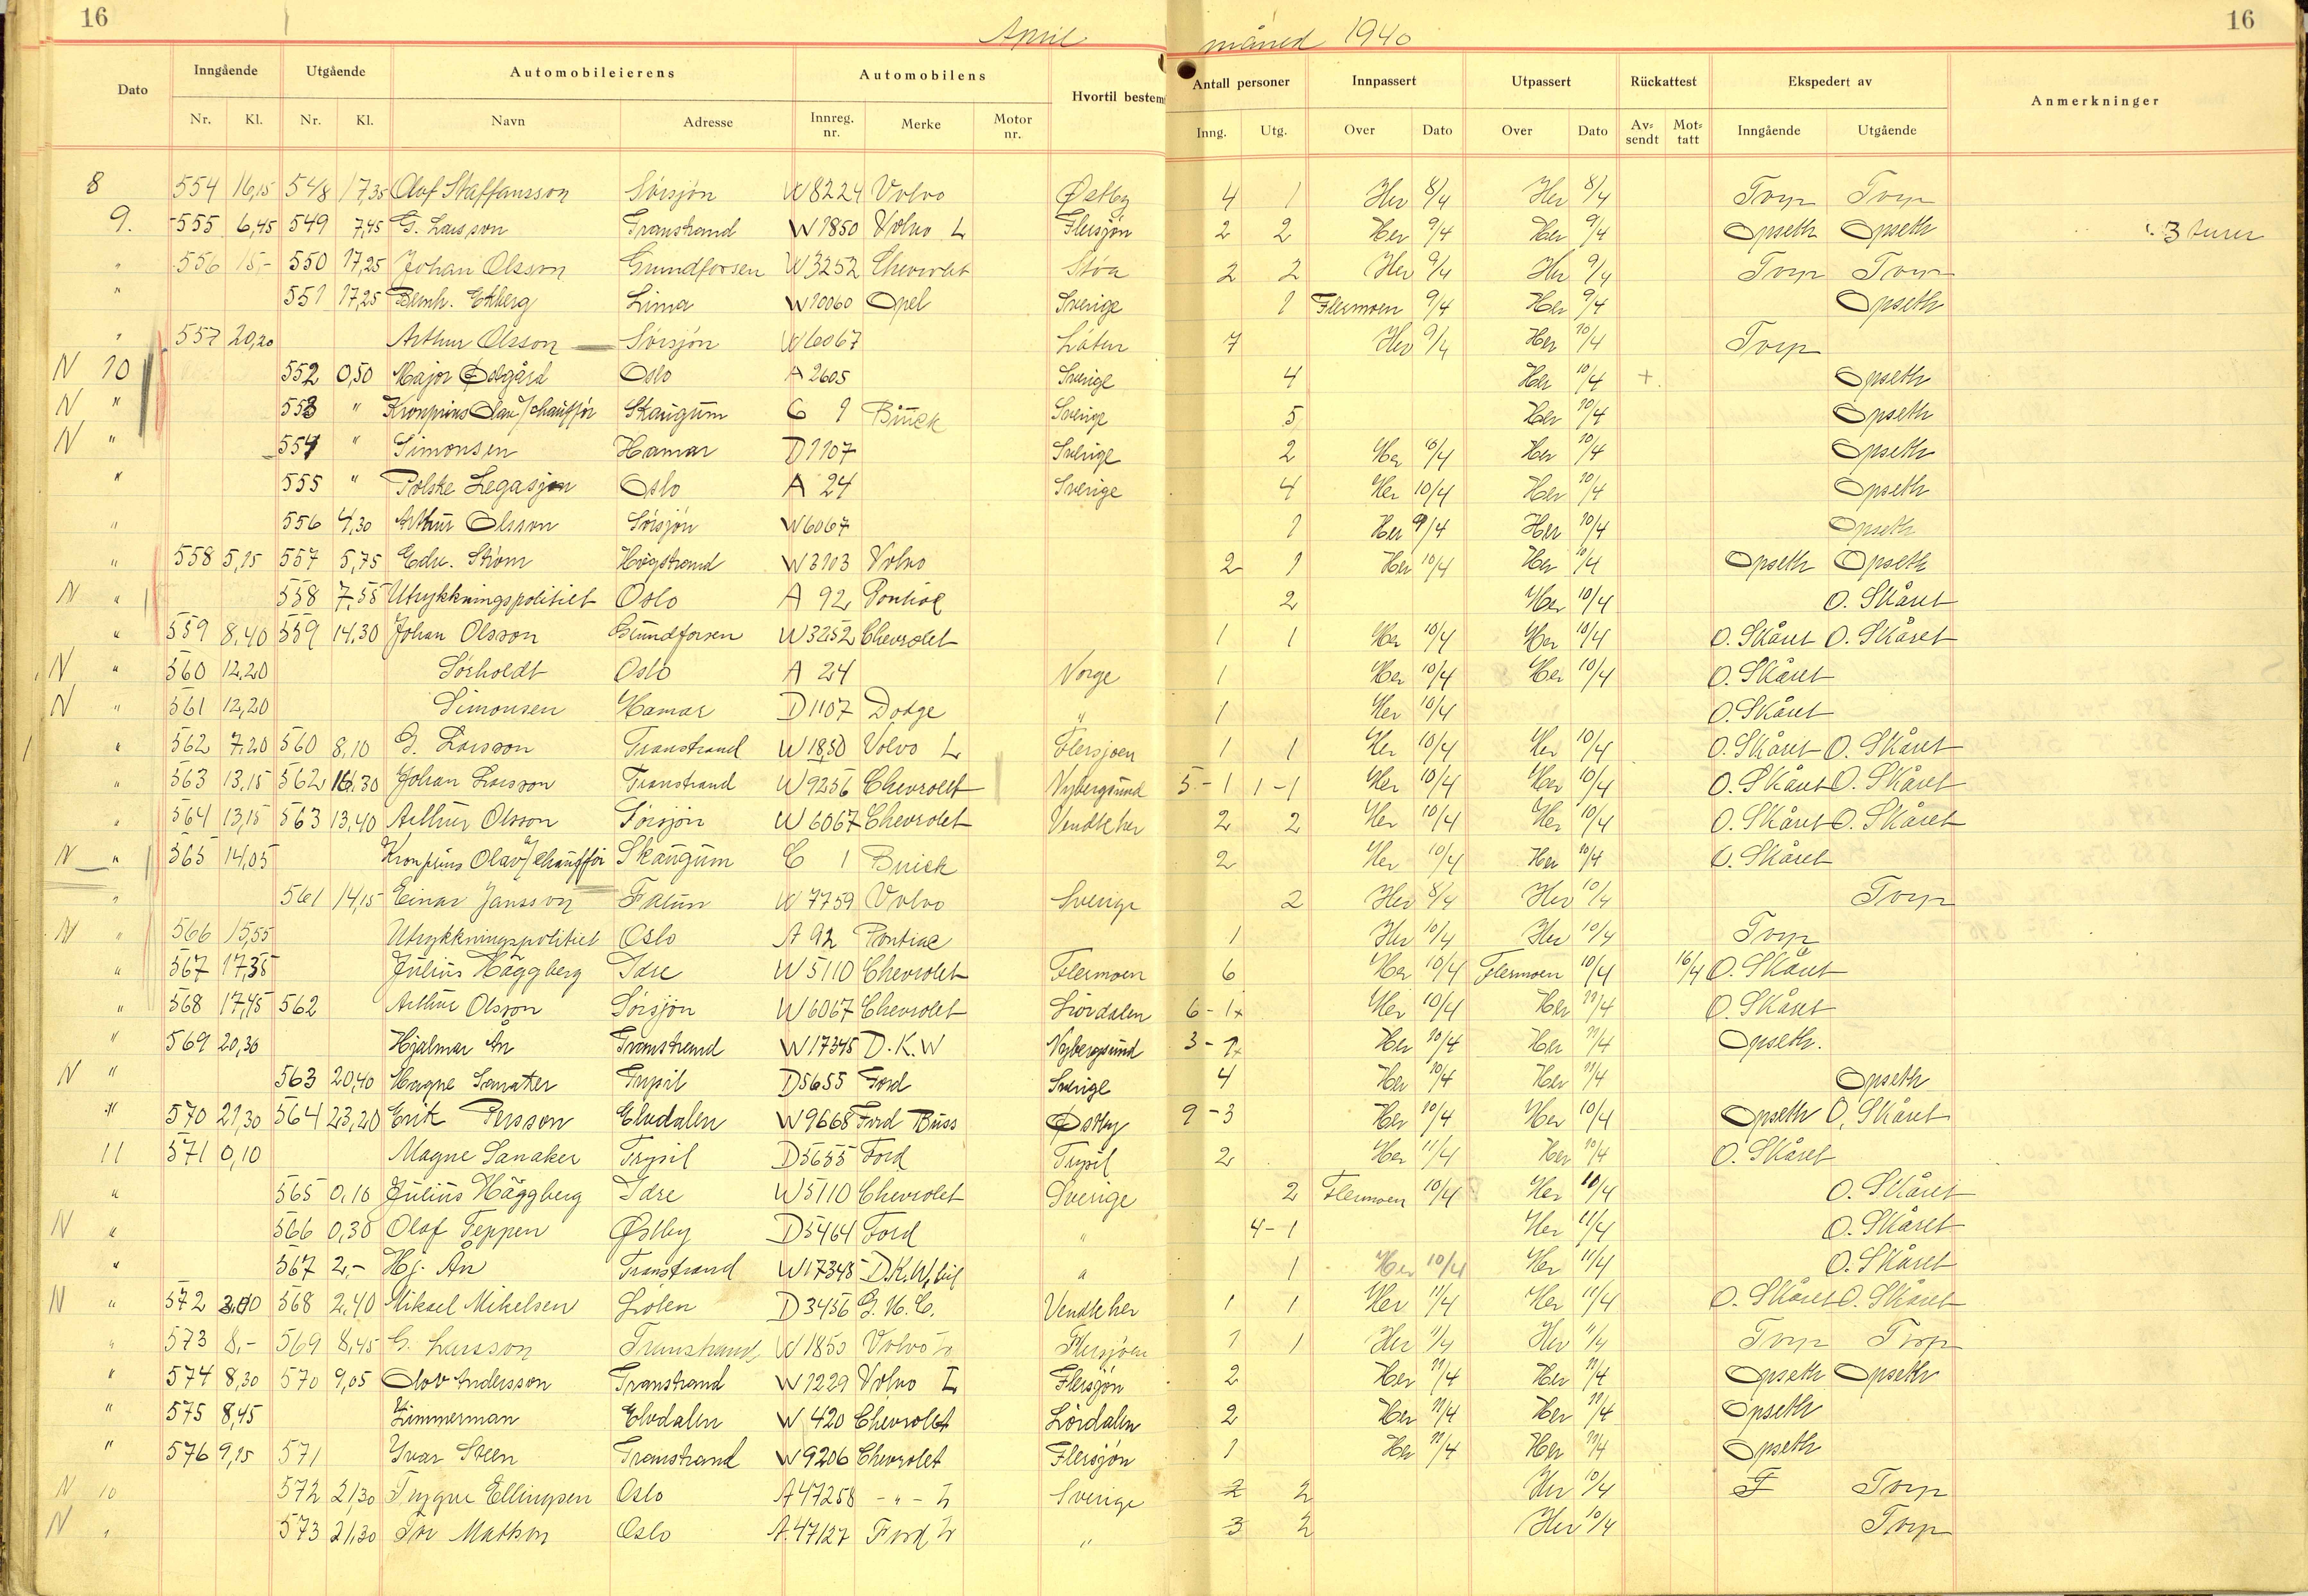 16
April
måned 1940
16
Dato Inngående Utgående Automobileierens Automobilens Hvortil bestem Antall personer Innpassert Utpassert Rückattest Ekspedert av Anmerkninger
Nr. Kl. Nr. Kl. Navn Adresse Innreg. nr. Merke Motor nr. Inng. Utg. Over Dato Over Dato Av= sendt Mot= tatt Inngående Utgående
8 554 16,15 548 17,35 Olof Staffansson Sörsjön W8224 Volvo Østby 4 1 Her 8/4 Her 8/4 Torp Torp
9. 555 6,45 549 7,45 G. Larsson Transtrand W1850 Volvo L Flersjön 2 2 Her 9/4 Her 9/4 Opseth Opseth 3 turer
" 556 15,- 550 17,25 Johan Olsson Grundforsen W3252 Chevrolet Støa 2 2 Her 9/4 Her 9/4 Torp Torp
" 551 17,25 Bernh. Ekberg Lima W10060 Opel Sverige 1 Flermoen 9/4 Her 9/4 Opseth
" 557 20,20 Arthur Olsson Sörsjön W6067 7 Her 9/4 Her 10/4 Torp
N 10 552 0,50 Major Oslo A 2605 Sverige 4 Her 10/4 + Opseth
N " 553 " Kronprins Olav/chaufför Skaugum C 1 Buick Sverige 5 Her 10/4 Opseth
N " 554 " Simonsen Hamar D1107 Sverige 2 Her 10/4 Her 10/4 Opseth
" 555 " Polske Legasjon Oslo A 24 Sverige 4 Her 10/4 Her 10/4 Opseth
" 556 4,30 Arthur Olsson Sörsjön W6067 1 Her 9/4 Her 10/4 Opseth
" 558 5,15 557 5,75 Edv. Ström Högstrand W3103 Volvo 2 1 Her 10/4 Her 10/4 Opseth Opseth
N " 558 7,55 Utrykkningspolitiet Oslo A 92 Pontiac 2 Her 10/4 O. Skåret
" 559 8,40 559 14,30 Johan Olsson Grundforsen W3252 Chevrolet 1 1 Her 10/4 Her 10/4 O. Skåret O. Skåret
N " 560 12,20 Sörholdt Oslo A 24 Norge 1 Her 10/4 Her 10/4 O. Skåret
N " 561 12,20 Simonsen Hamar D1107 Dodge " 1 Her 10/4 O. Skåret
1 " 562 7,20 560 8,10 G. Larsson Transtrand W1850 Volvo L Flersjøen 1 1 Her 10/4 Her 10/4 O. Skåret O. Skåret
" 563 13,15 562 16,30 Johan Larsson Transtrand W9256 Chevrolet Nybergsund 5-1 1-1 Her 10/4 Her 10/4 O. Skåret O. Skåret
" 564 13,15 563 13,40 Arthur Olsson Sörsjön W6067 Chevrolet Vendte her 2 2 Her 10/4 Her 10/4 O. Skåret O. Skåret
N " 565 14,05 Kronprins Olav/chaufför Skaugum C 1 Buick 2 Her 10/4 Her 10/4 O. Skåret
" 561 14,15 Einar Jansson Falun W7759 Volvo Sverige 2 Her 8/4 Her 10/4 Torp
N " 566 15,55 Utrykkningspolitiet Oslo A 92 Pontiac 1 Her 10/4 Her 10/4 Torp
" 567 17,35 Julius Häggberg Idre W5110 Chevrolet Flermoen 6 Her 10/4 Flermoen 10/4 16/4 O. Skåret
" 568 17,45 562 Arthur Olsson Sörsjön W6067 Chevrolet Lørdalen 6-1x Her 10/4 Her 11/4 O. Skåret
" 569 20,30 Hjalmar Ån Transtrand W17345 D.K.W Nybergsund 3-1x Her 10/4 Her 11/4 Opseth.
N " 563 20,40 Magne Sanaker Trysil D5655 Ford Sverige 4 Her 10/4 Her 11/4 Opseth
" 570 21,30 564 23,20 Erik Persson Elvdalen W9668 Ford Buss Østby 9-3 Her 10/4 Her 10/4 Opseth O. Skåret
11 571 0,10 Magne Sanaker Trysil D5655 Ford Trysil 2 Her 11/4 Her 10/4 O. Skåret
" 565 0,10 Julius Häggberg Idre W5110 Chevrolet Sverige 2 Flermoen 10/4 Her 10/4 O. Skåret
N " 566 0,30 Olof Teppen Østby D5464 Ford " 4-1 Her 11/4 O. Skåret
" 567 2,- Hj. Ån Transtrand W17345 D.K.W, bil " 1 Her 10/4 Her 11/4 O. Skåret
N " 572 568 2,40 Miksel Mikelsen D3456 G.M.C. Vendte her 1 1 Her 11/4 Her 11/4 O. Skåret O. Skåret
" 573 8,- 569 8,45 G. Larsson Transtrand W1850 Volvo L Flersjøen 1 1 Her 11/4 Her 11/4 Torp Torp
" 574 8,30 570 9,05 Olov Andersson Transtrand W1229 Volvo L Flersjön 2 Her 11/4 Her 11/4 Opseth Opseth
" 575 8,45 Zimmerman Elvdalen W 420 Chevrolet Lördalen 2 Her 11/4 Her 11/4 Opseth
" 576 9,15 571 Yvar Steen Transtrand W9206 Chevrolet Flersjön 1 Her 11/4 Her 11/4 Opseth
N 10 572 21,30 Trygve Ellingsen Oslo A47258 -"- L Sverige 2 2 Her 10/4 T Torp
N " 573 21,30 Tor Oslo A.47127 Ford L " 3 2 Her 10/4 Torp